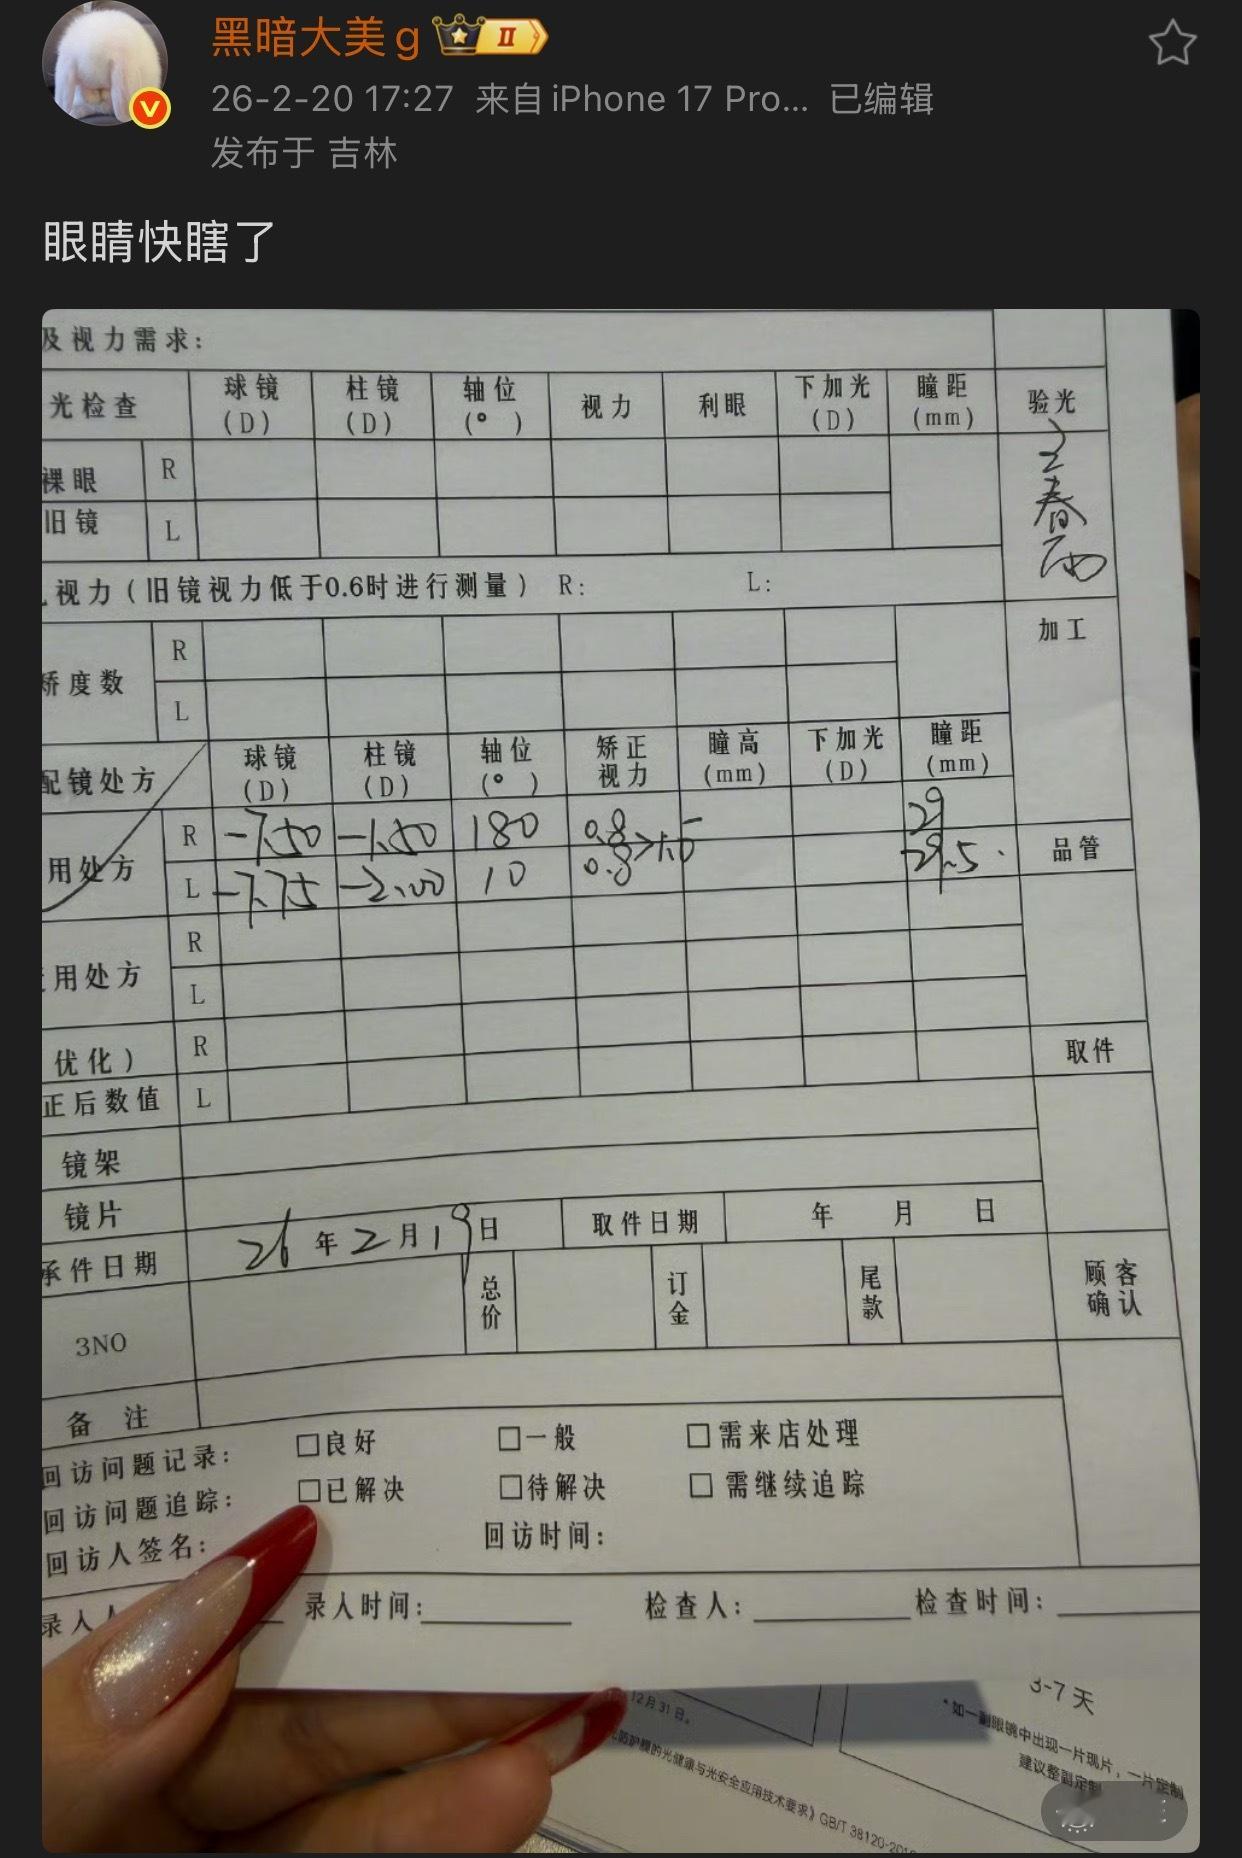 黑暗大美g
II
26-2-20 17:27 来自 iPhone 17 Pro... 已编辑
发布于 吉林
眼睛快瞎了
及视力需求：
光检查 球镜(D) 柱镜(D) 轴位(° ) 视力 利眼 下加光(D) 瞳距(mm) 验光
裸眼 R
旧镜 L
王春
视力（旧镜视力低于0.6时进行测量） R： L：
加工
矫度数 R
L
配镜处方 球镜(D) 柱镜(D) 轴位(° ) 矫正视力 瞳高(mm) 下加光(D) 瞳距(mm)
用处方 R -7.50 -1.50 180 0.8 29
L -7.75 -2.00 10 0.8 >1.0 29.5
品管
用处方 R
L
优化） R
正后数值 L
取件
镜架
镜片
承件日期 26年2月19日 取件日期 年 月 日
3NO 总价 订金 尾款 顾客确认
备 注
回访问题记录： □良好 □一般 □需来店处理
回访问题追踪： □已解决 □待解决 □需继续追踪
回访人签名： 回访时间：
录入人 录入时间： 检查人： 检查时间：
12月31日。
3-7天
*如一副眼镜中出现一片现片，一片定制
建议整副定制
防护膜的光健康与光安全应用技术要求》GB/T 38120-201